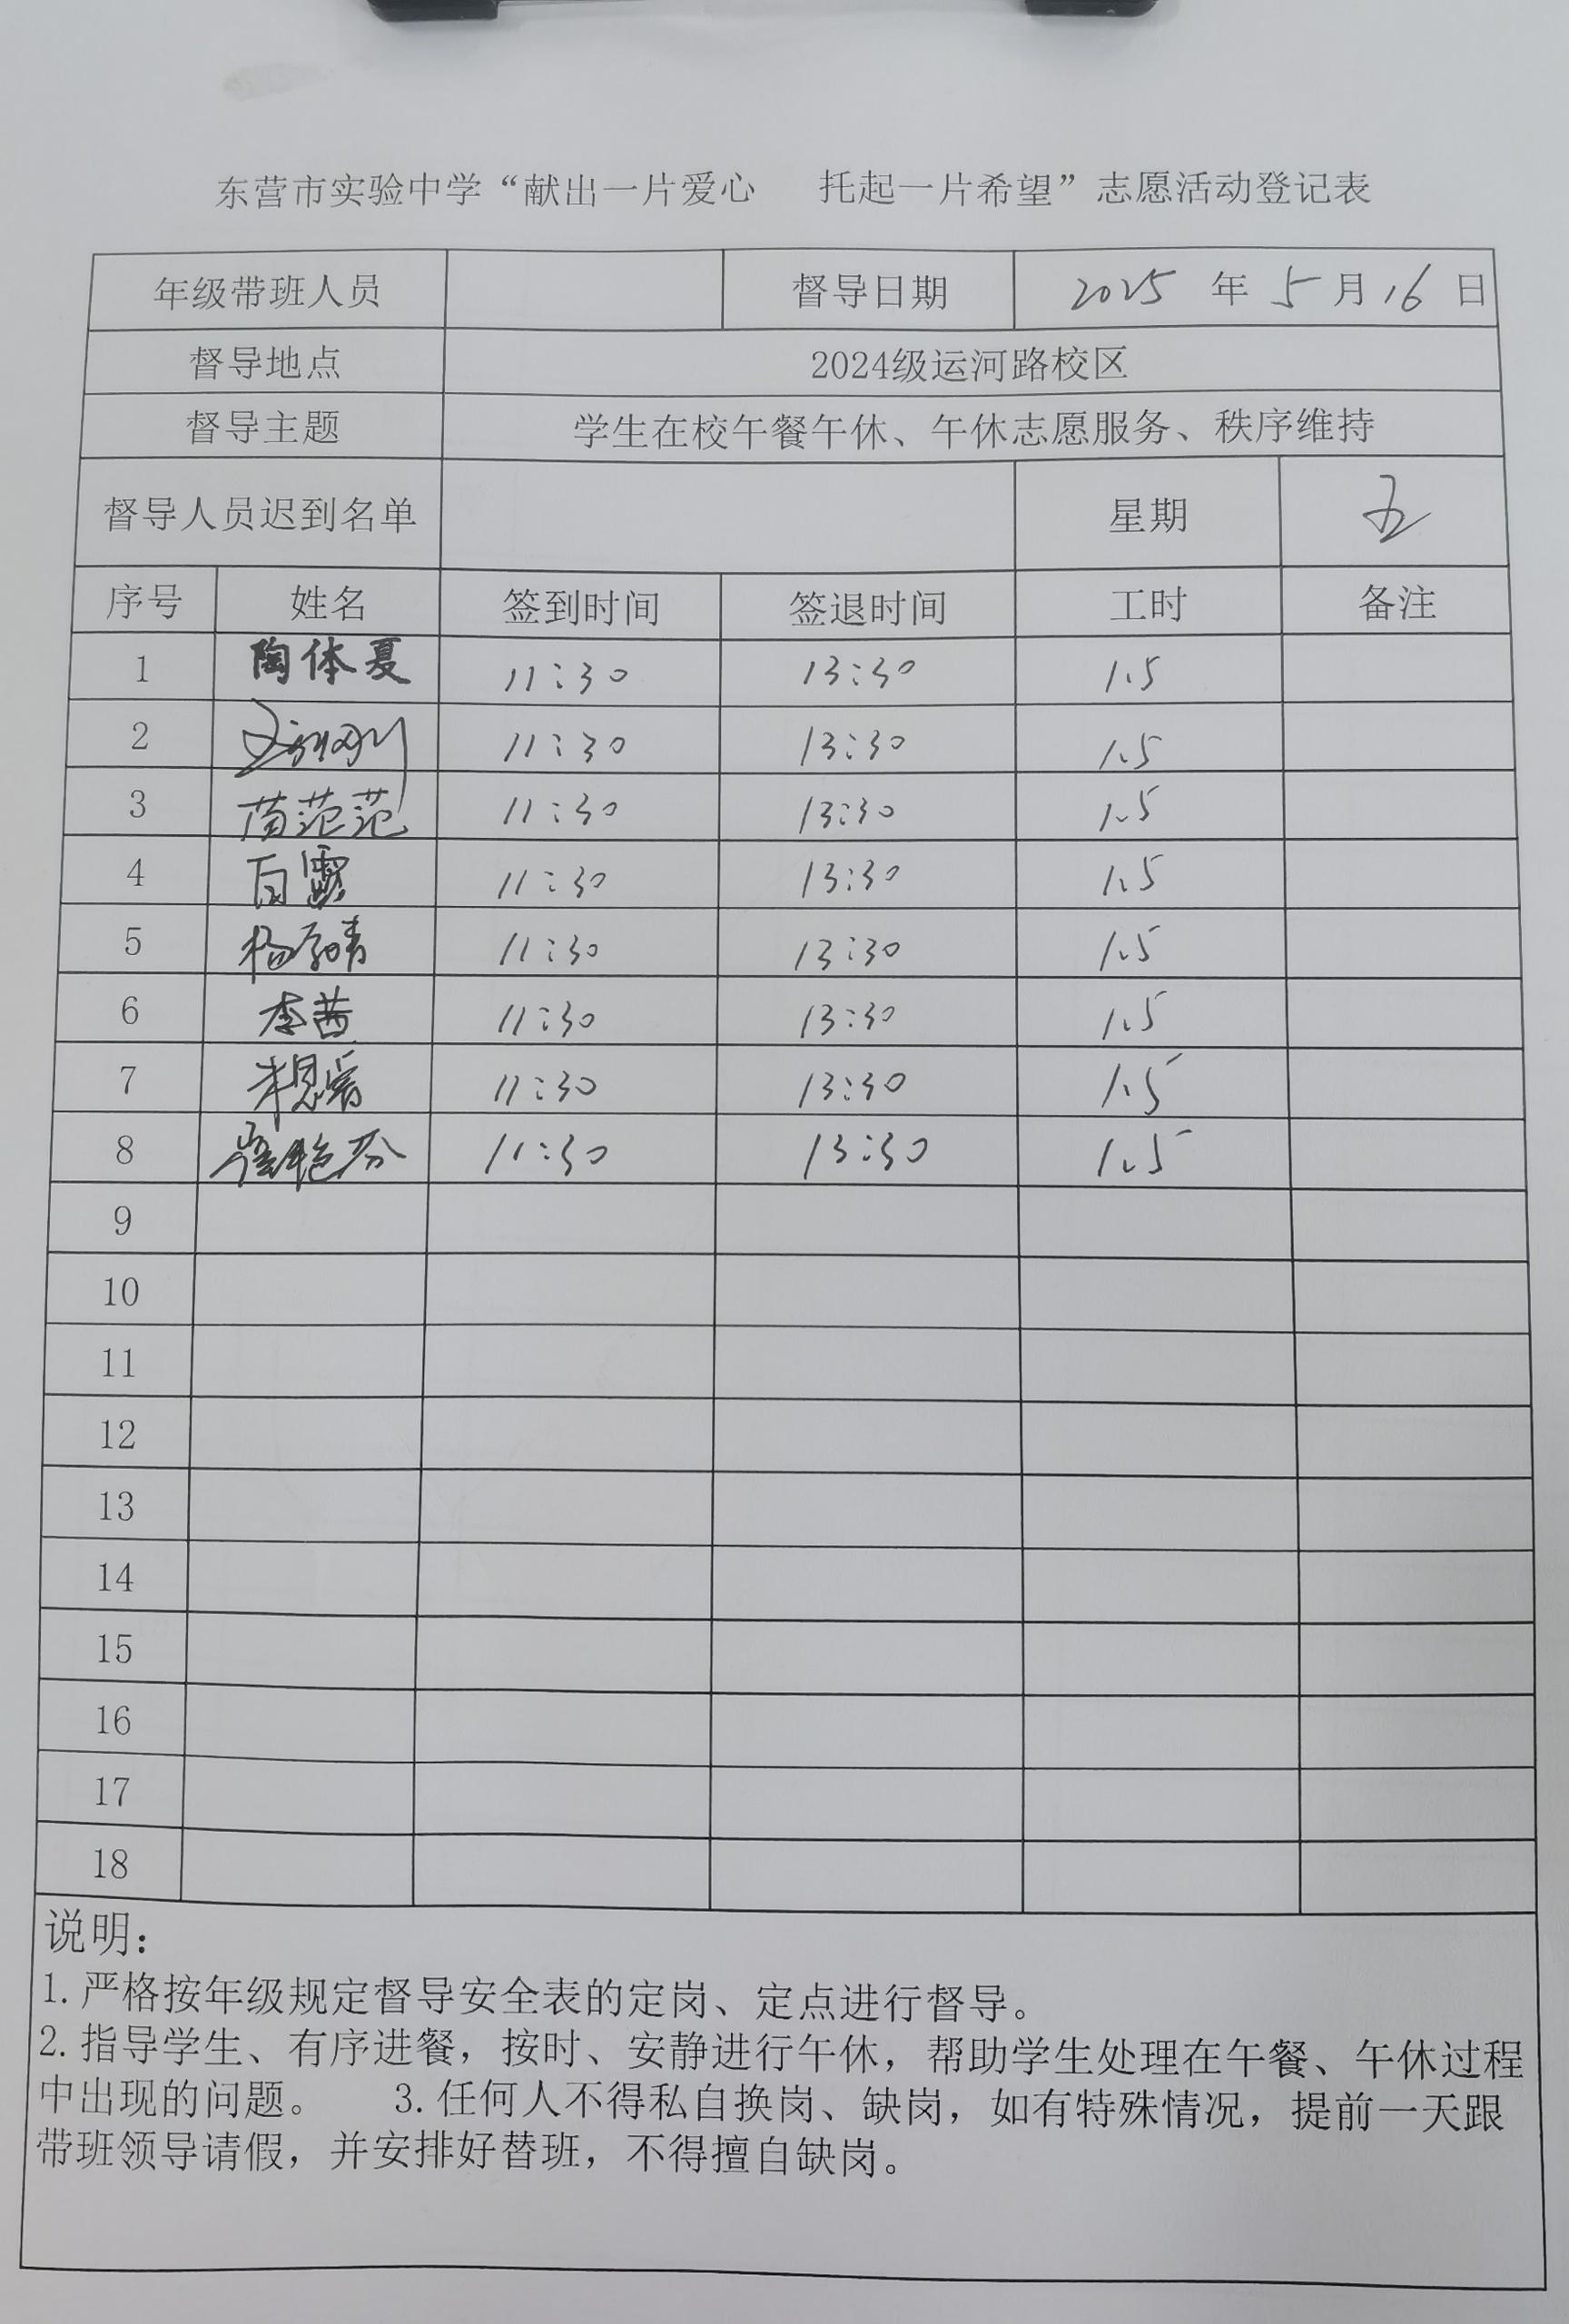 东营市实验中学“献出一片爱心 托起一片希望”志愿活动登记表
年级带班人员 督导日期 2025 年 5 月 16 日
督导地点 2024级运河路校区
督导主题 学生在校午餐午休、午休志愿服务、秩序维持
督导人员迟到名单 星期 五
序号 姓名 签到时间 签退时间 工时 备注
1 陶体夏 11:30 13:30 1.5
2 11:30 13:30 1.5
3 苗范范 11:30 13:30 1.5
4 白露 11:30 13:30 1.5
5 11:30 13:30 1.5
6 李茜 11:30 13:30 1.5
7 11:30 13:30 1.5
8 11:30 13:30 1.5
9
10
11
12
13
14
15
16
17
18
说明：
1.严格按年级规定督导安全表的定岗、定点进行督导。
2.指导学生、有序进餐，按时、安静进行午休，帮助学生处理在午餐、午休过程
中出现的问题。 3.任何人不得私自换岗、缺岗，如有特殊情况，提前一天跟
带班领导请假，并安排好替班，不得擅自缺岗。